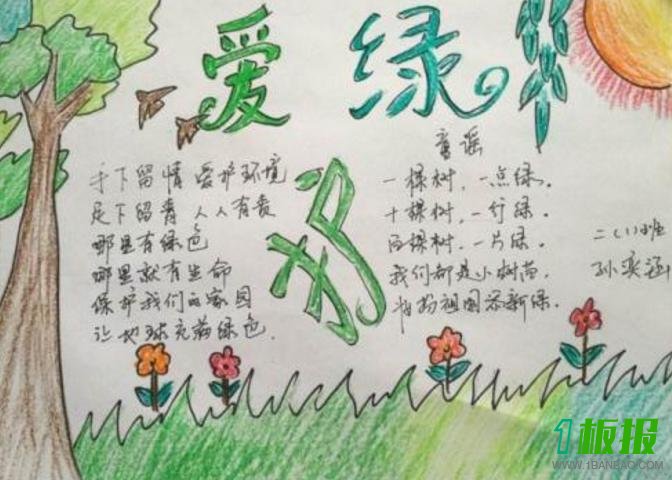 爱绿
护
手下留情 爱护环境
足下留青 人人有责
哪里有绿色
哪里就有生命
保护我们的家园
让地球充满绿色.
童谣
一棵树,一点绿.
十棵树,一行绿.
百棵树,一片绿.
我们都是小树苗.
祖国添新绿.
二(1)班
孙奕涵
1板报
WWW.1BANBAO.COM